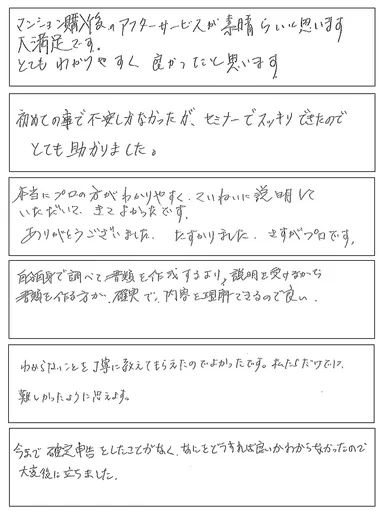 マンション購入後のアフターサービスが素晴らしいと思います
大満足です。
とても わかりやすく 良かったと思います
初めての事で不安しかなかったが、セミナーでスッキリできたので
とても助かりました。
本当にプロの方がわかりやすく、ていねいに説明して
いただいて、きてよかったです。
ありがとうございました。たすかりました。さすがプロです。
自分自身で調べて書類を作成するより、説明を受けながら
書類を作る方が、確実で、内容を理解できるので良い。
わからないことを丁寧に教えてもらえたのでよかったです。私たちだけでは、
難しかったように思えます。
今まで確定申告をしたことがなく、なにをどうすれば良いかわからなかったので
大変役に立ちました。